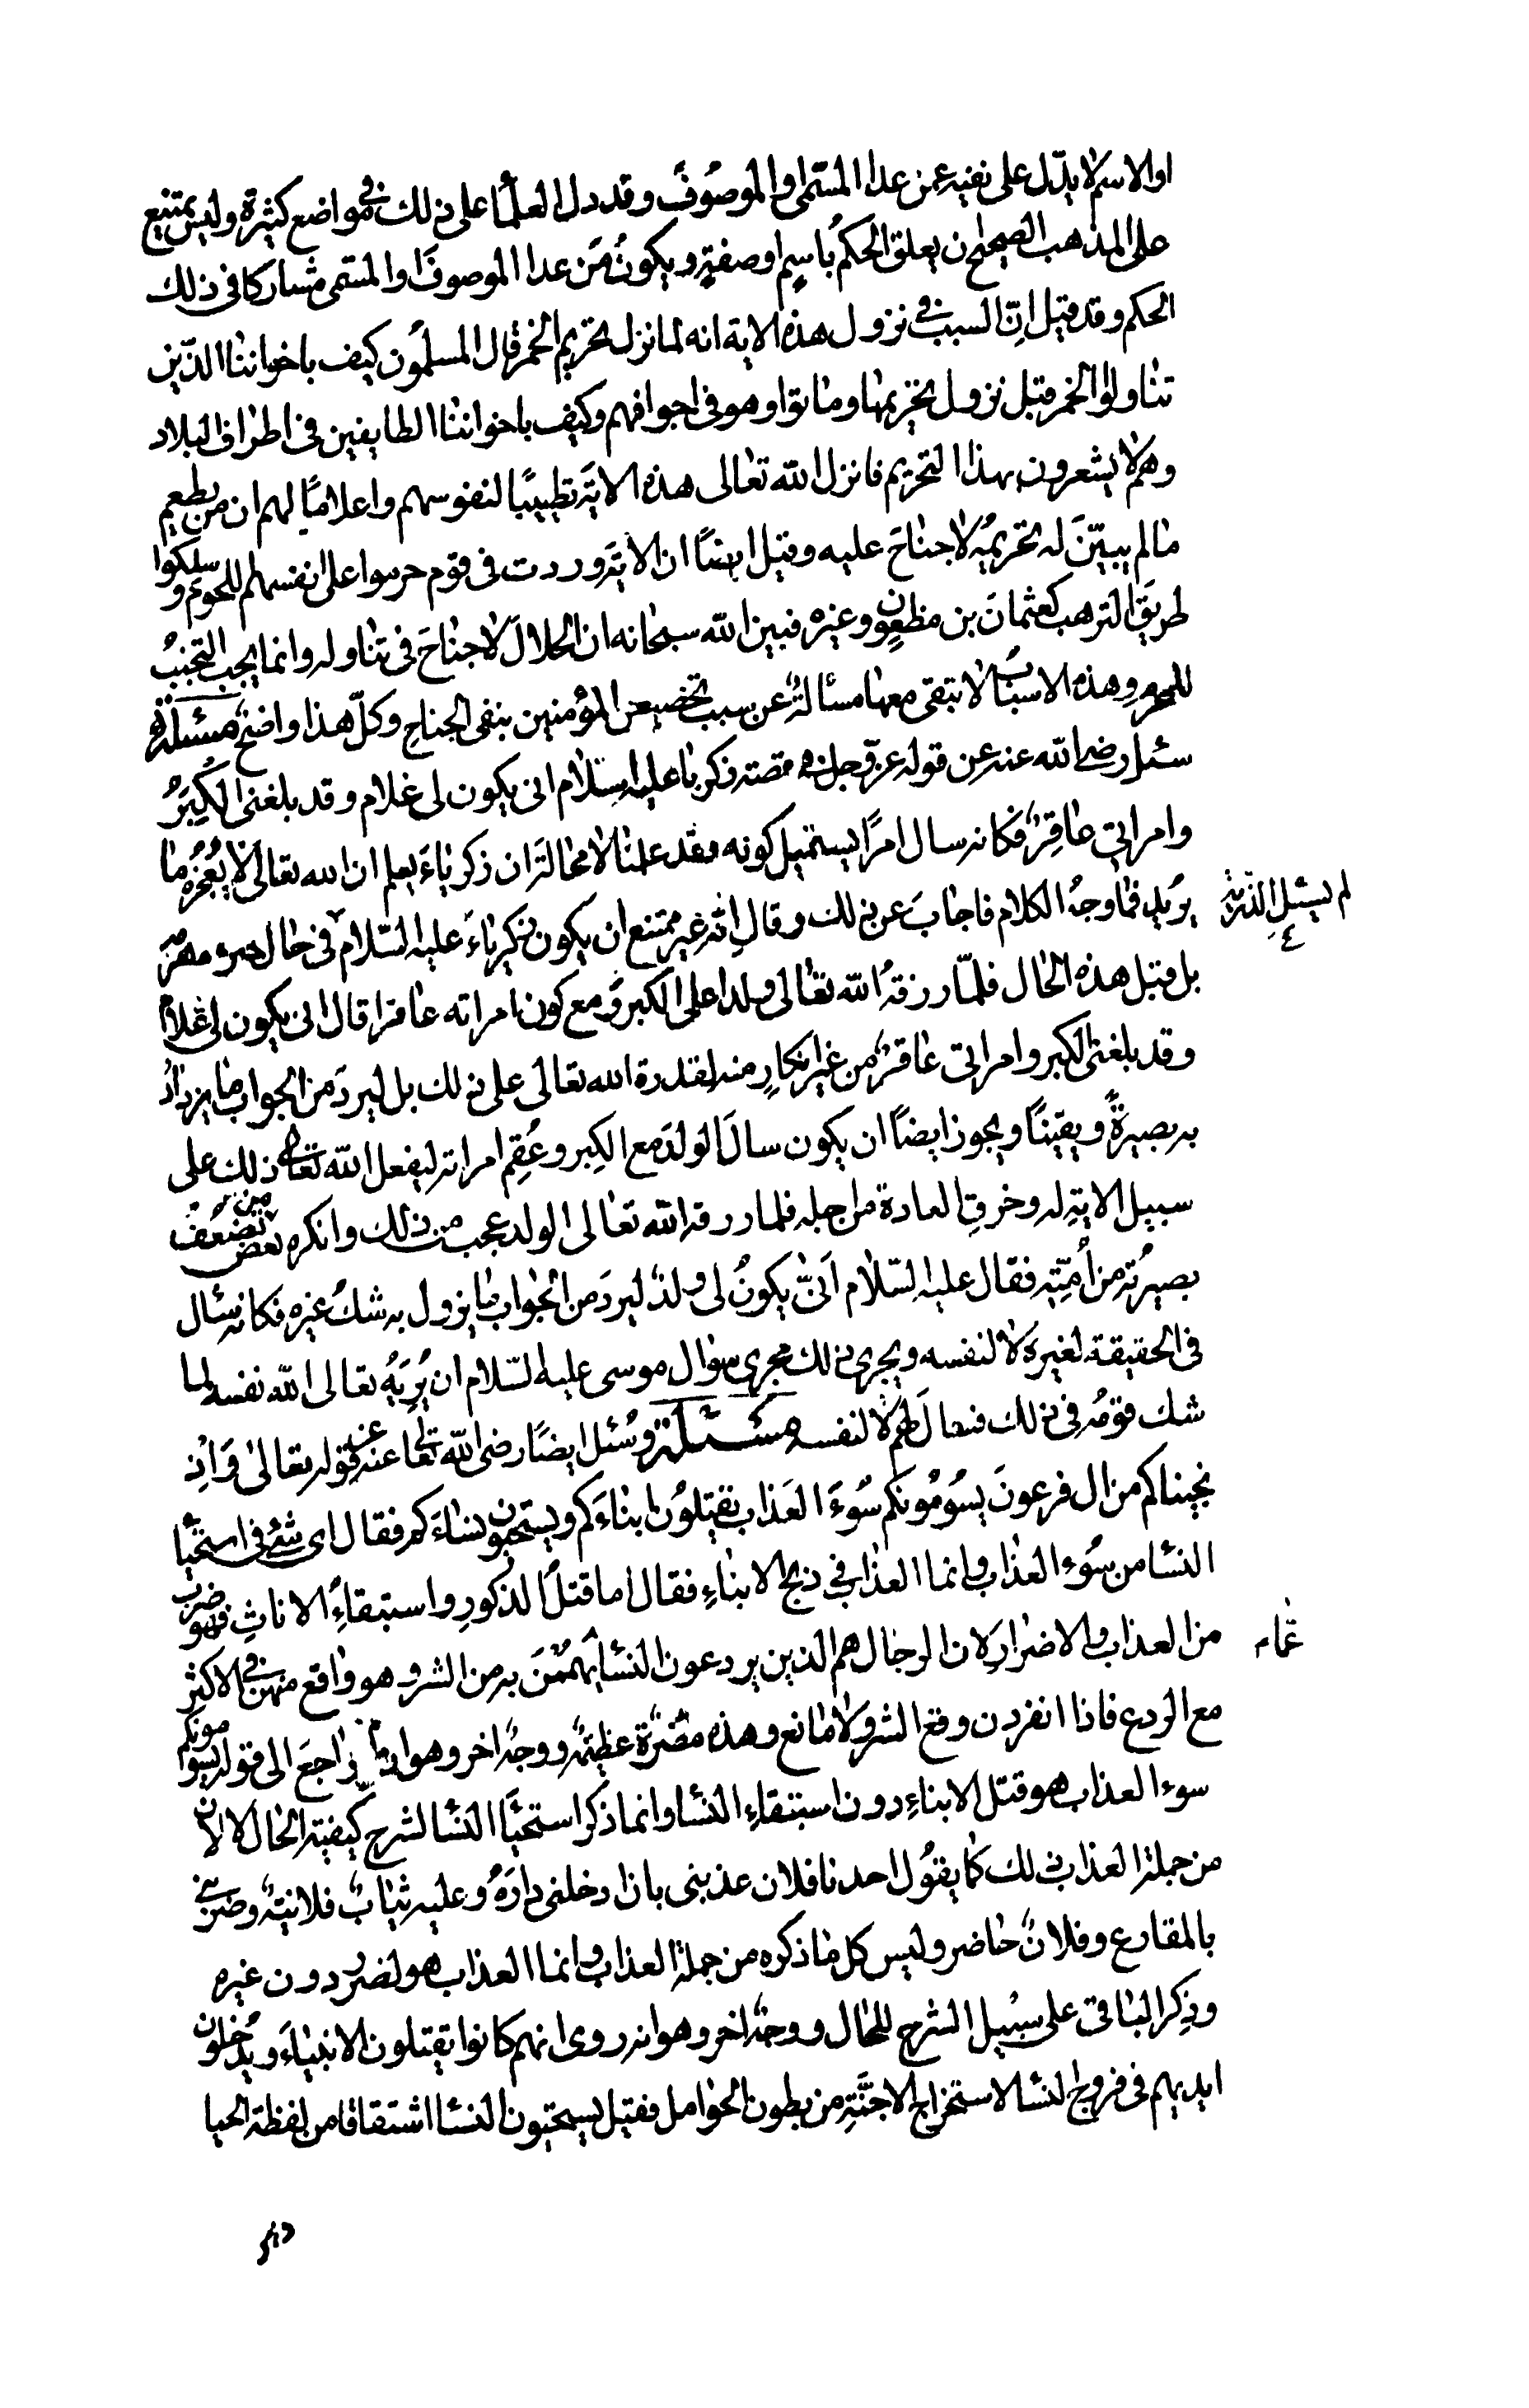 او الاسم لا يدّل على نفيه عمن عدا المسّمى او الموصُوف وقد دل العلمأ على ذلك في مواضع كثيرة وليس يمتنع
على المذهب الصحيح ان يعلق الحكمُ باسمٍ او صفةٍ ويكونُ مَن عدا الموصوفَ او المسّمى مشاركا في ذلك
الحكم وقد قيل انّ السبب في نزول هذه الاية انه لما نزل تحريم الخمر قال المسلمُون كيف باخواننا الذّين
تناولوا الخمر قبل نزول تحريمها وماتوا وهو في اجوافهم وكيف باخواننا الطايفين في اطراف البلاد
وهم لا يشعرون بهذا التحريم فانزل الله تعالى هذه الايَة تطييبًا لنفوسهم واعلامًا لهم ان من يطعم
مالم يبيّنَ له تحريمُه لا جناحَ عليه وقيل ايضًا ان الايَة وردت في قوم حرموا على انفسهم اللحومَ و سلكوا
طريقَ الترهب كعثمانَ بن مظعون وغيره فبين الله سبحانه ان الحلالَ لا جناحَ في تناوله وانما يجب التجنبُ
للمحرم وهذه الاسبابُ لا تبقى معها مسألةٌ عن سبب تخصيص المؤمنين بنفى الجناح وكلّ هذا واضحٌ مسئلة
سئل رضي الله عنه عن قوله عزّوجل في قصة ذكريا عليه السلام انى يكون لى غلام وقد بلغنى الكِبَرُ
وامراتِى عاقِرٌ فكانه سال امرًا يستحيل كونه وقد علمنا لا محالةَ ان ذكرياءَ يعلم ان الله تعالى لا يُعْجِزُه ما
يريد فما وجهُ الكلام فاجابَ عن ذلك وقال انّه غير ممتنع ان يكون زكرياءَ عليه السّلام في حال
لم يسئل الذّريّة
بل قبل هذه الحال فلمّا رزقهُ الله تعَالى ولدا على الكبر وَمع كون امراته عاقرا قال انى يكون لى غلامٌ
وقد بلغنى الكبر وامراتى عاقرٌ من غير انكارٍ منه لقدرة الله تعالى على ذلك بل ليردَ من الجواب ما يزدادُ
به بصيرةً ويقينًا ويجوز ايضًا ان يكون سالَ الولدَ مع الكِبر وعُقِم امراته ليفعل الله تعالى ذلك على
سبيل الايةِ له وخرقِ العادة من اجله فلما رزقه الله تعالى الولد عجب من ذلك وانكره بعض من تضعُفُ
بصيرُته من أمّتِه فقال عليه السّلام اَنّى يكونُ لى ولدٌ ليردَ من الجواب ما يزول به شكُ غيره فكانه سئال
في الحقيقة لغيره لا لنفسه ويجرى ذلك مجرى سؤال موسى عليه السّلام ان يُرِيَهُ تعالى الله نفسه لما
شك قومُه في ذلك فسال لَهُم لا لنفسه مسئلة وسُئل ايضًا رضى الله تعالى عنه عن قوله تعالى وَاِذ
نجيناكم من ال فرعونَ يسُومُونكم سُوءَ العَذاب يقتِلوُن ابناءَكم ويستحيون نساءَكم فقال اى شئ في استحيأ
النسأ من سُوء العذاب وانما العذاب في ذبح الابناءِ فقال اما قتلُ الذكورِ واستبقاءُ الاناثِ فهو ضرب
من العذاب والاضرار لان الرجال هم الذين يردعون النسأ عمّا يَهمُمْنَ به من الشر وهو واقع منهن في الاكثر
مع الردع فاذا انفردن وقع الشر ولا مانع وهذه مضرّة عظيمة ووجهٌ اخر وهو راجعَ الى قوله يسوا مونكم
سوء العذاب هو قتل الابناءِ دون استبقاءِ النسأ وانما ذكر استحيَأ النسأ لشرح كيفية الحال لا لان
من جملة العذاب ذلك كما يقوُل احدنا فلان عذبنى بان ادخلنى دارَهُ وعليه ثيابٌ فلانيةٌ وضربنى
بالمقارع وفلانٌ حاضر وليس كل ما ذكره من جملة العذاب وانما العذاب هو لضرب دون غيره
وذِكر الباقى على سبيل الشرح للحال ووجهٌ اخر وهو انه روى انهم كانوا يقتلون الابنياءَ ويُدخلون
ايديهم في فروج النسأ لاستخراج الاجنّةِ من بطون الحوامل فقيل يستحيون النسأ اشتقاقا من لفظة الحيا